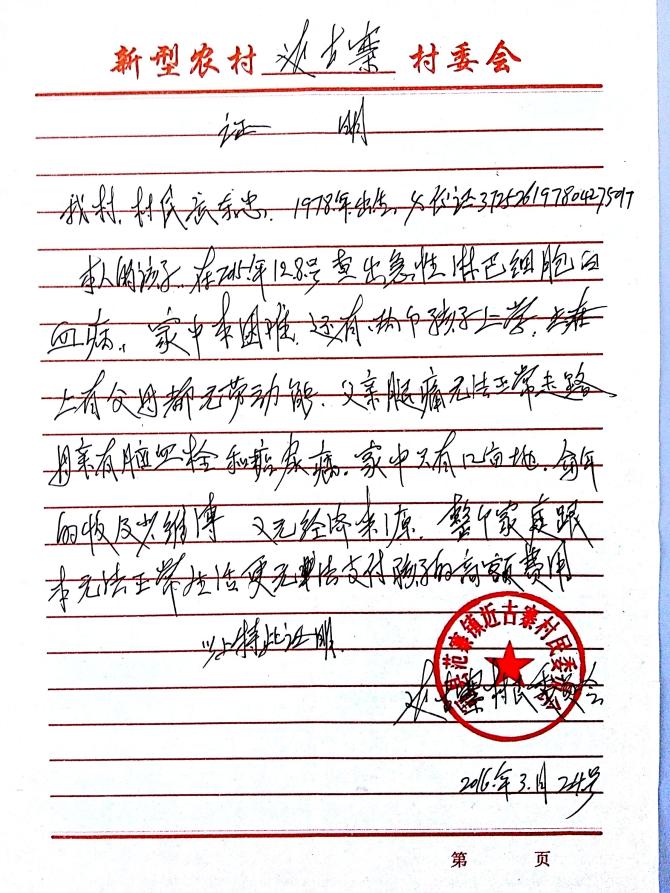 新型农村 近古寨 村委会
证 明
我村村民袁东忠．1978年出生，身份证372526197804275017
本人的孩子．在2015年12.8号查出急性淋巴细胞白
血病．家中本困难．还有两个孩子上学．
上有父母都无劳动能．父亲腿痛无法正常走路
母亲有脑血栓和糖尿病．家中只有几亩地．每年
的收及其维薄 又无经济来源．整个家庭跟
本无法正常生活更无法支付孩子的高额费用
以上特此证明．
县范寨镇近古寨村民委员会
近古寨村民委员会
2016年3.月24号
第 页